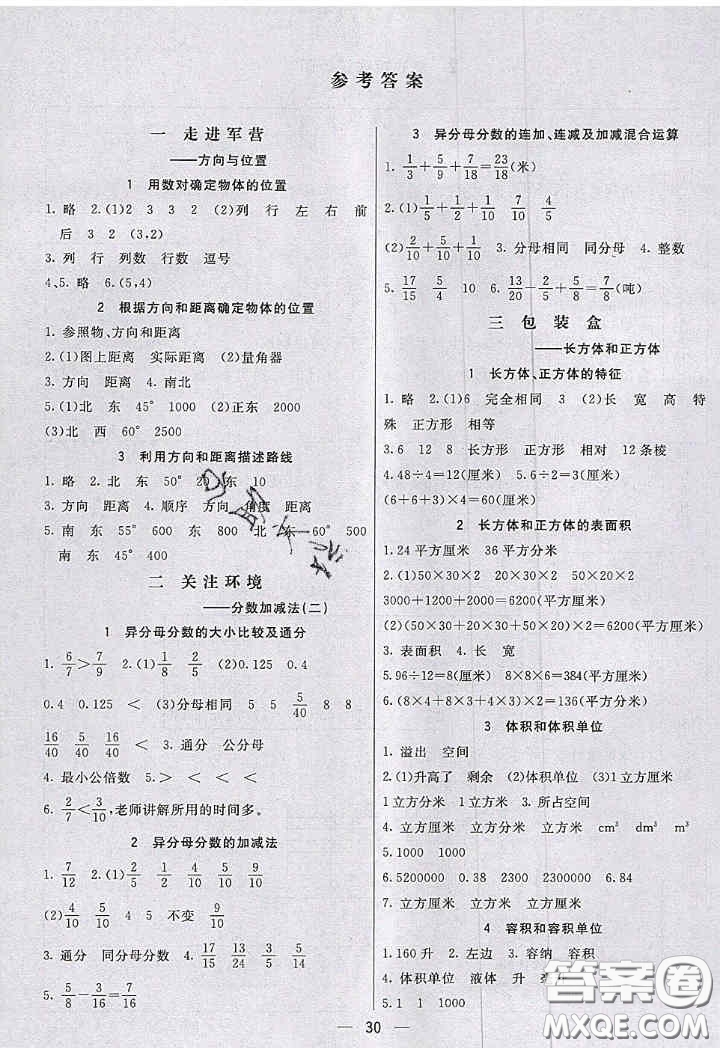 参考答案
一 走进军营
——方向与位置
1 用数对确定物体的位置
1. 略 2.(1)2 3 3 2 (2)列 行 左 右 前
后 3 2 (3,2)
3. 列 行 列数 行数 逗号
4、5. 略 6.(5,4)
2 根据方向和距离确定物体的位置
1. 参照物、方向和距离
2.(1)图上距离 实际距离 (2)量角器
3. 方向 距离 4. 南北
5.(1)北 东 45° 1000 (2)正东 2000
(3)北 西 60° 2500
3 利用方向和距离描述路线
1. 略 2. 北 东 50° 20 东 10
3. 方向 距离 4. 顺序 方向 角度 距离
5. 南 东 55° 600 东 800 北 东 60° 500
南 东 45° 1000
二 关注环境
——分数加减法(二)
1 异分母分数的大小比较及通分
1. 6/7>7/9 2.(1)1/8 2/5 (2)0.125 0.4
0.4 0.125 < (3)分母相同 5 5 5/40 8 8
16/40 16/40 5/40 < 3. 通分 公分母
4. 最小公倍数 5. > < < <
6. 2/7<3/10,老师讲解所用的时间多。
2 异分母分数的加减法
1. 7/12 2.(1)2/4 1/4 5/10 4/10 9/10
(2)4/10 5/10 4 5 不变 9/10
3. 通分 同分母分数 4. 17/15 13/24 3/10 5/14
5. 5/8-3/16=7/16
3 异分母分数的连加、连减及加减混合运算
1. 1/3+5/9+7/18=23/18(米)
2.(1)1/5+1/2+1/10 7/10 4/5
(2)1/10+1/2 3. 分母相同 同分母 4. 整数
5. 17/15 5/4 10 6. 13/20-1/2+5/8=7/8(吨)
三 包装盒
——长方体和正方体
1 长方体、正方体的特征
1. 略 2.(1)6 完全相同 3 (2)长 宽 高 特
殊 正方形 相等
3.6 12 8 长方形 正方形 相对 12条棱
4.48÷4=12(厘米) 5.6÷2=3(厘米)
(6+6+3)×4=60(厘米)
2 长方体和正方体的表面积
1.24平方厘米 36平方分米
2.(1)50×30×2 20×30×2 50×20×2
3000+1200+2000=6200(平方厘米)
(2)(50×30+20×30+50×20)×2=6200(平方厘米)
3. 表面积 4. 长 宽
5.96÷12=8(厘米) 8×8×6=384(平方厘米)
6.(8×4+8×3+4×3)×2=136(平方厘米)
3 体积和体积单位
1. 溢出 空间
2.(1)升高了 剩余 (2)体积单位 (3)1立方厘米
1立方分米 1立方米 3. 所占空间
4. 立方厘米 立方分米 立方米 cm³ dm³ m³
5.1000 1000
6.5200000 0.38 2300 2300000 6.84
7. 立方分米 立方厘米 立方米
4 容积和容积单位
1.160升 2. 左边 3. 容纳 容积
4. 体积单位 液体 升
5.1 1 1000
30
答案圈
MXQE.COM